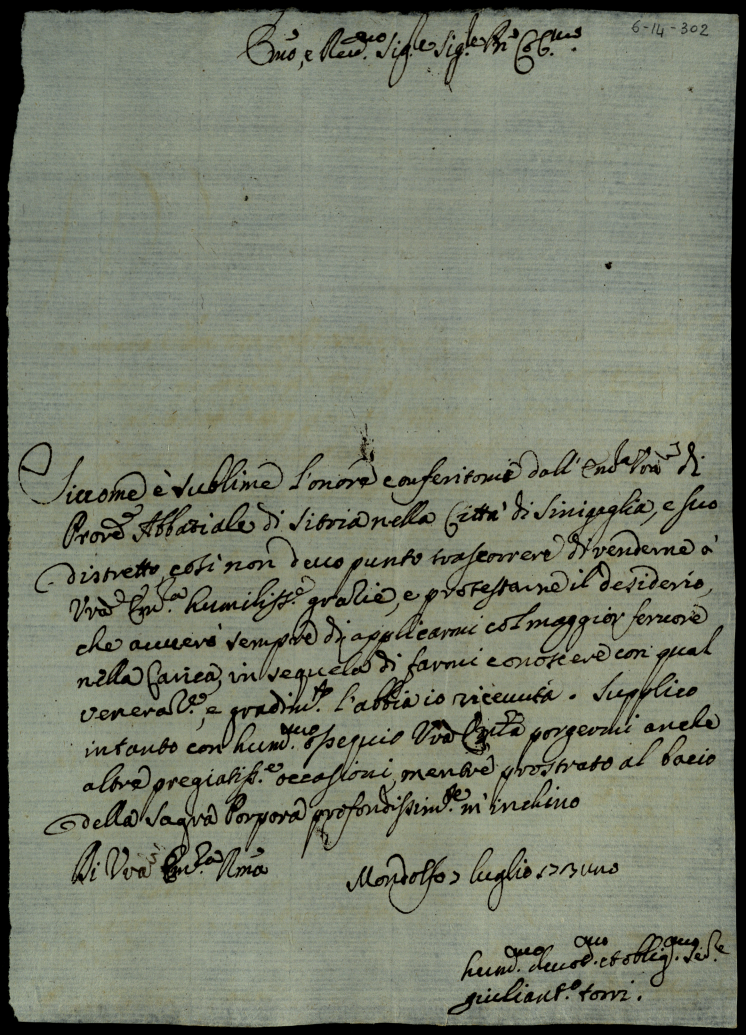 6-14-302
Em̃o, e Reu.mo Sig.e Sig.e Prõ Col.mo
Siccome è sublime l'onore conferitomi dall' Em.za Vrã di
Prove Abbatiale di Sitria nella Città di Sinigaglia, e suo
distretto, così non devo punto trascorrere di renderne à
Vrã Em.za humiliss.e grazie, e protestarne il desiderio,
che auuerò sempre di applicarmi col maggior feruore
nella Carica, in sequela di farmi conoscere con qual
veneraz.e, e gradim.to l'abbia io riceuuta. Supplico
intanto con hum.mo ossequio Vrã Em.za porgermi anche
altre pregiatiss.e occasioni, mentre prostrato al bacio
della Sagra Porpora profondissim.te m'inchino
Di Vrã Em.za Rmã Mondolfo 7 luglio 1731
hum.mo deuot.mo et oblig.mo Ser.e
Giuliant.o torri.